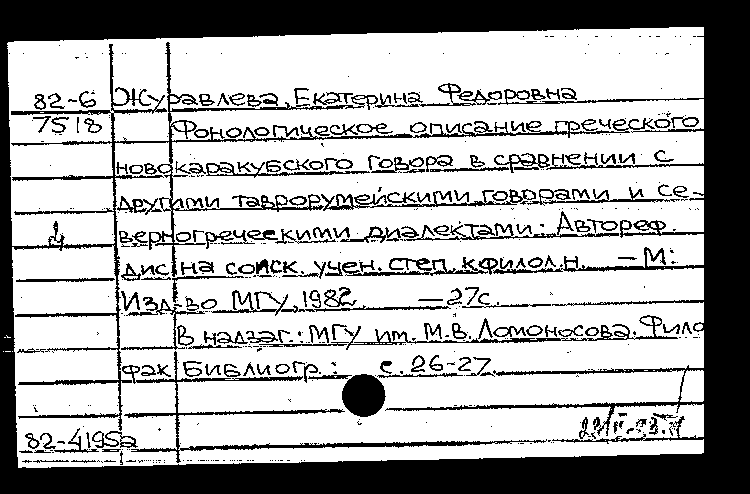 82-6 Журавлева, Екатерина Федоровна
7518 Фонологическое описание греческого
новокаракубского говора в сравнении с
другими таврорумейскими говорами и се-
верногреческими диалектами: Автореф.
дис. на соиск. учен. степ. к.филол.н. — М:
Изд-во МГУ, 1982. — 27с.
В надзаг.: МГУ им. М.В. Ломоносова. Фило
фак Библиогр.: с. 26-27.
82-4195а